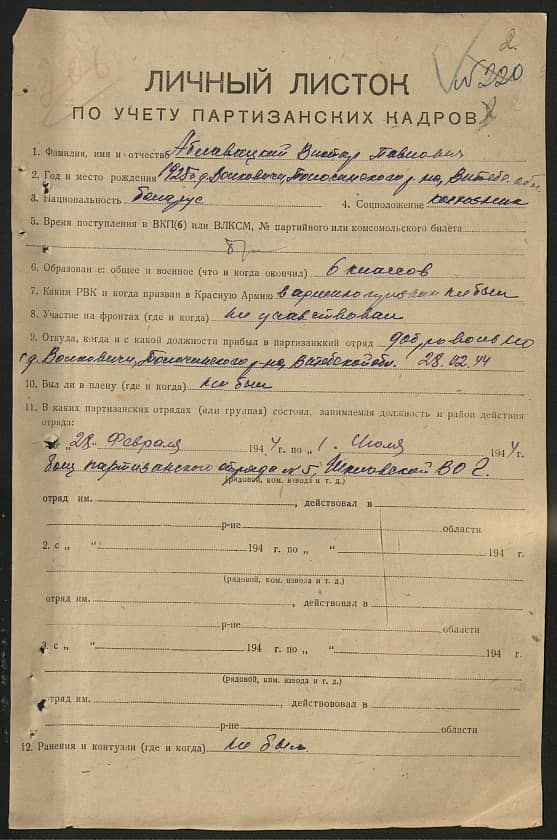 2.
№ 220
ЛИЧНЫЙ ЛИСТОК
ПО УЧЕТУ ПАРТИЗАНСКИХ КАДРОВ
1. Фамилия, имя и отчество Аблавацкий Виктор Павлович
2. Год и место рождения 1925 г. д. Волковичи, Толочинского р-на, Витебс. обл.
3. Национальность белорус 4. Соцположение колхозник
5. Время поступления в ВКП(б) или ВЛКСМ, № партийного или комсомольского билета
6. Образован е: общее и военное (что и когда окончил) 6 классов
7. Каким РВК и когда призван в Красную Армию в армию не был
8. Участие на фронтах (где и когда) не участвовал
9. Откуда, когда и с какой должности прибыл в партизанкий отряд добровольно
с д. Волковичи, Толочинского р-на, Витебской обл. 28.02.44
10. Был ли в плену (где и когда) не был
11. В каких партизанских отрядах (или группах) состоял, занимаемая должность и район действия
отряда:
„ 28 „ Февраля 1944 г. по „ 1 „ Июля 1944 г.
боец партизанского отряда № 5, Шкловской ВОГ.
(рядовой, ком. взвода и т. д.)
отряд им. , действовал в
р-не области
2. с „ “ 194 г. по „ “ 194 г.
(рядовой, ком. взвода и т. д.)
отряд им. , действовал в
р-не области
3. с „ “ 194 г. по „ “ 194 г.
(рядовой, ком. взвода и т. д.)
отряд им. , действововал в
р-не области
12. Ранения и контузли (где и когда) не был.